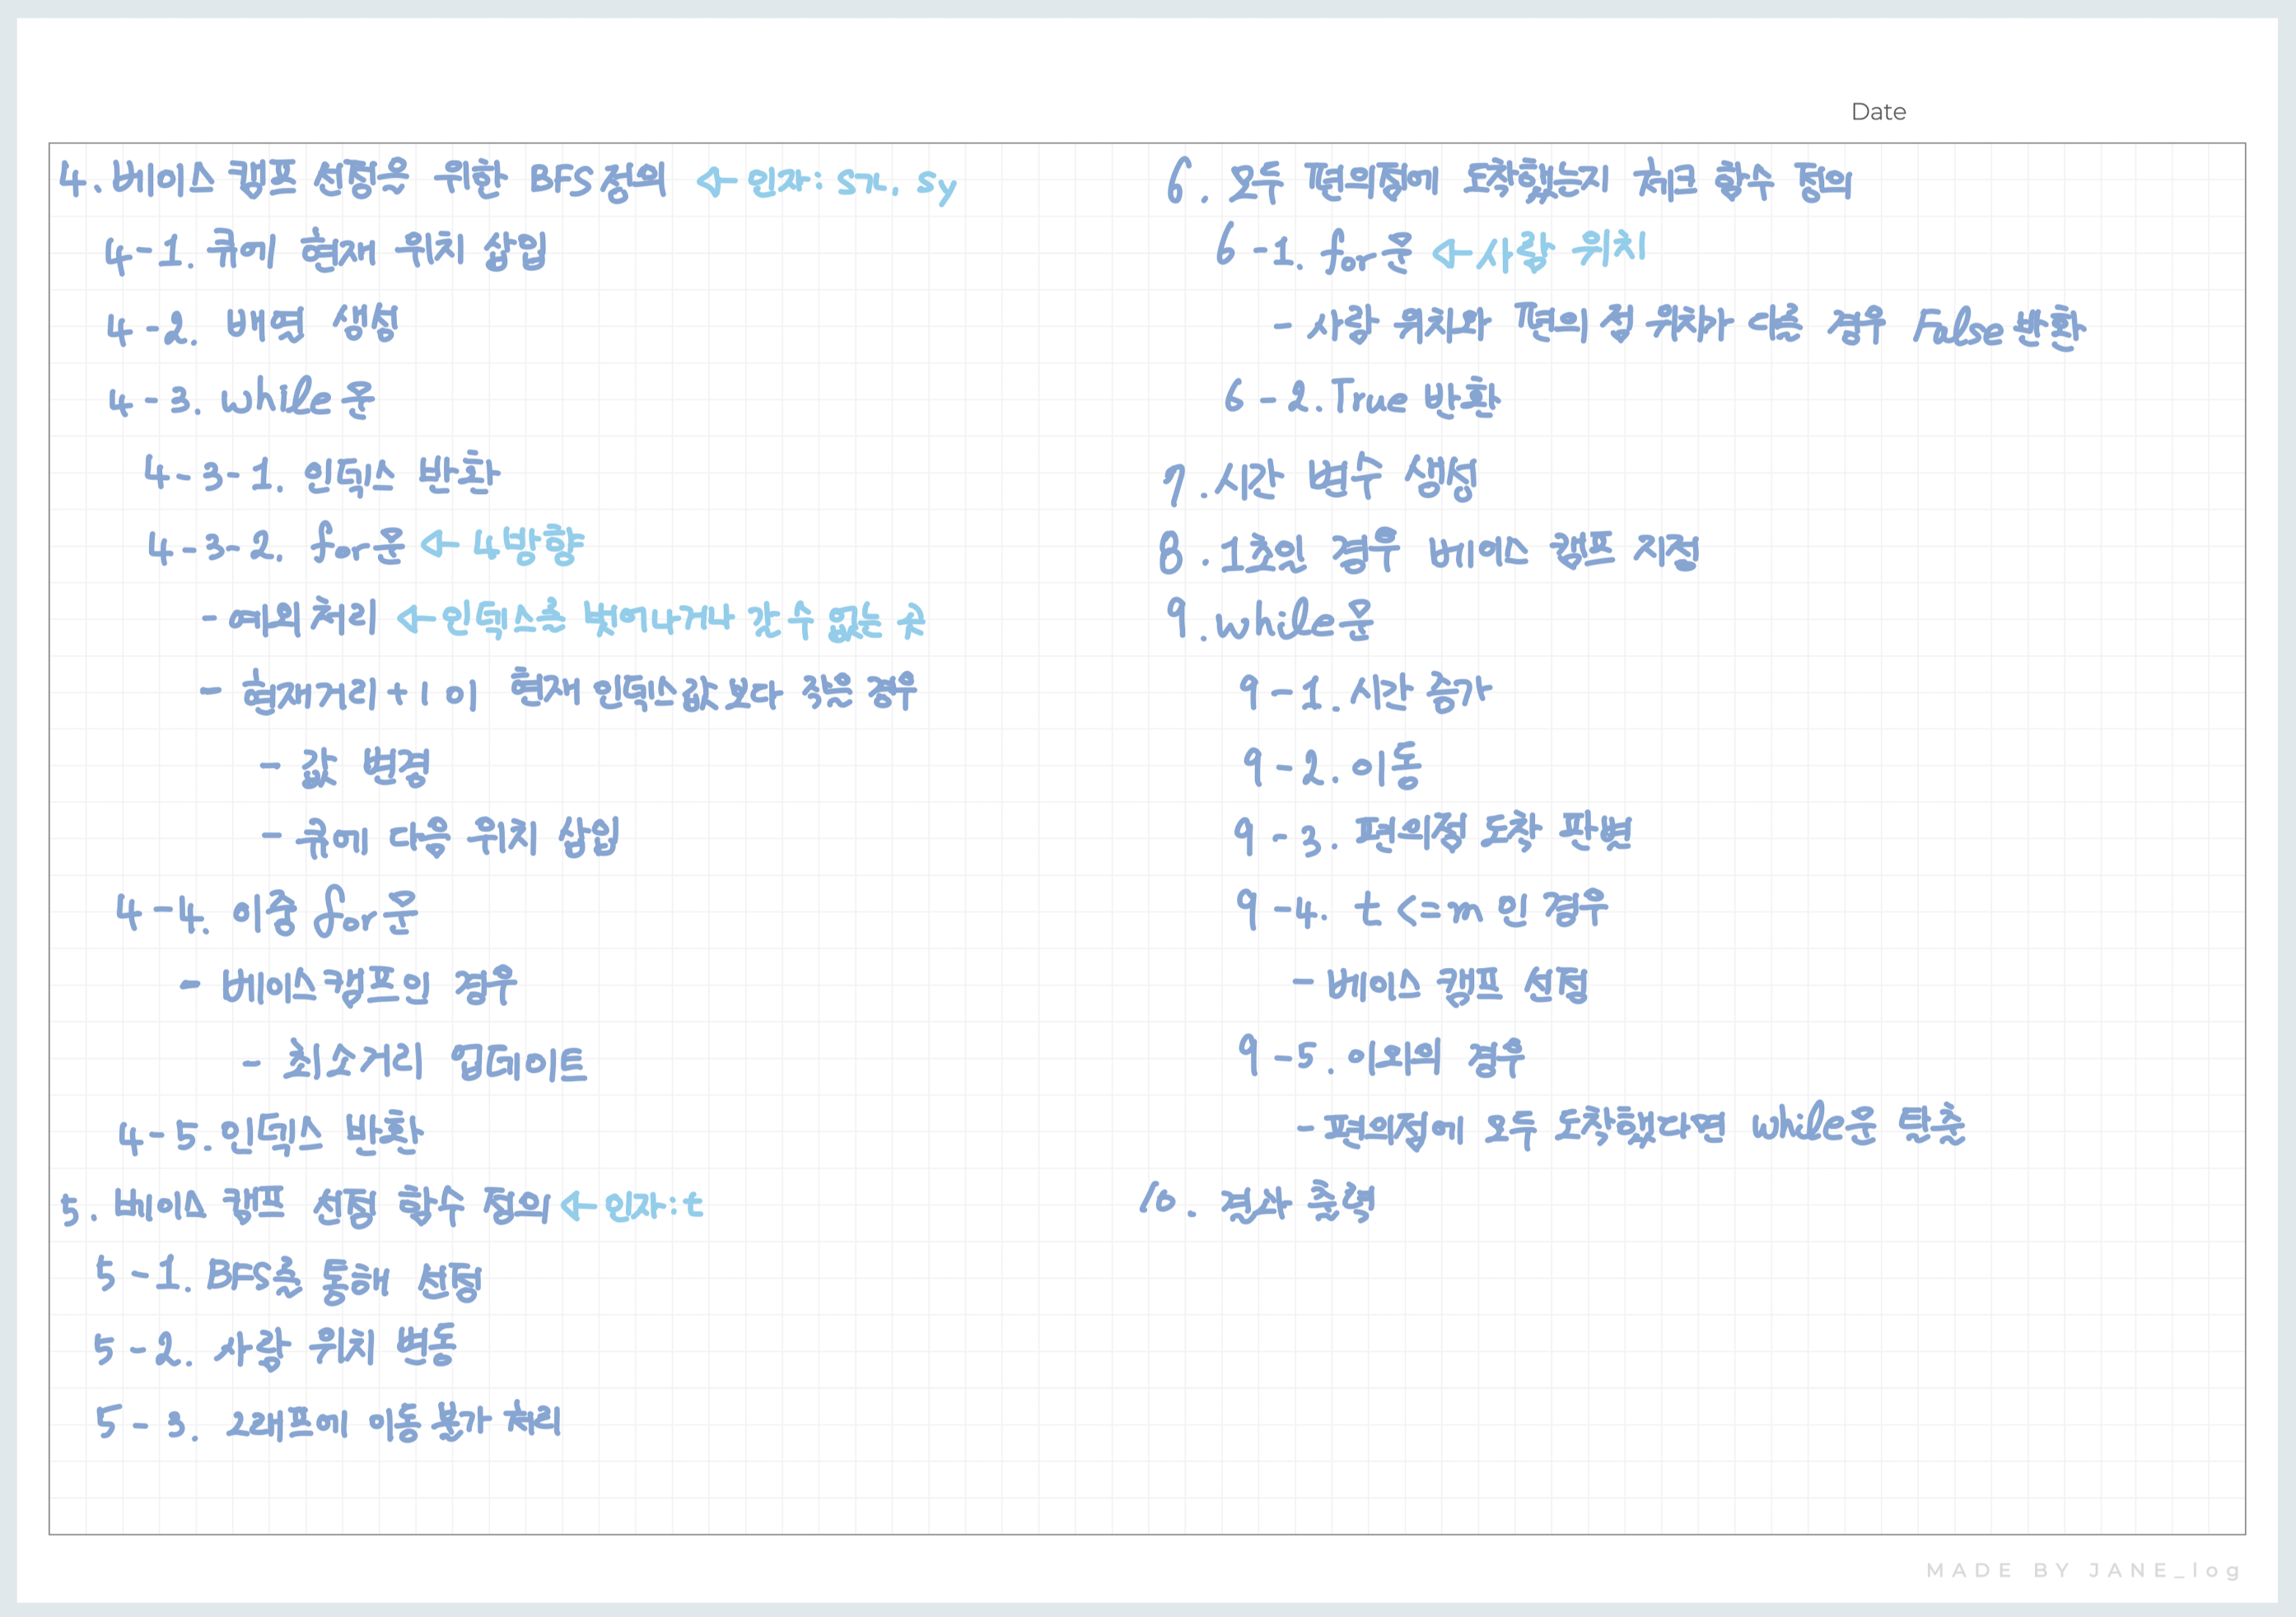 Date
4. 베이스 캠프 선정을 위한 BFS 정의 ← 인자: sx, sy
4-1. 큐에 현재 위치 삽입
4-2. 배열 생성
4-3. while문
4-3-1. 인덱스 반환
4-3-2. for문 ← 4방향
- 예외 처리 ← 인덱스를 벗어나거나 갈 수 없는 곳
- 현재거리+1 이 현재 인덱스값보다 작은 경우
- 값 변경
- 큐에 다음 위치 삽입
4-4. 이중 for문
- 베이스캠프인 경우
- 최소거리 업데이트
4-5. 인덱스 반환
5. 베이스 캠프 선정 함수 정의 ← 인자: t
5-1. BFS를 통해 선정
5-2. 사람 위치 변동
5-3. 그래프에 이동 불가 처리
6. 모두 편의점에 도착했는지 체크 함수 정의
6-1. for문 ← 사람 위치
- 사람 위치와 편의점 위치가 다를 경우 False 반환
6-2. True 반환
7. 시간 변수 생성
8. 1초인 경우 베이스 캠프 지정
9. while문
9-1. 시간 증가
9-2. 이동
9-3. 편의점 도착 판별
9-4. t <= m 인 경우
- 베이스 캠프 선정
9-5. 이외의 경우
- 편의점에 모두 도착했다면 while문 탈출
10. 결과 출력
MADE BY JANE_log